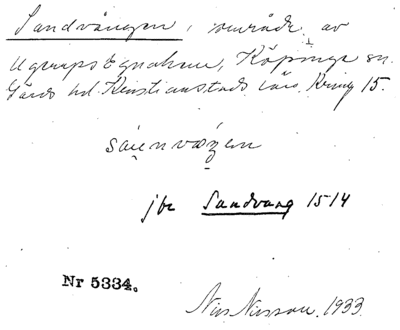 Sandvången, område av
Ugerups Egnahem, Köpinge sn.
Gärds hd. Kristianstads län. Kring 15.
jfr Sandvang 1514
Nr 5334.
Nils Nilsson. 1933.